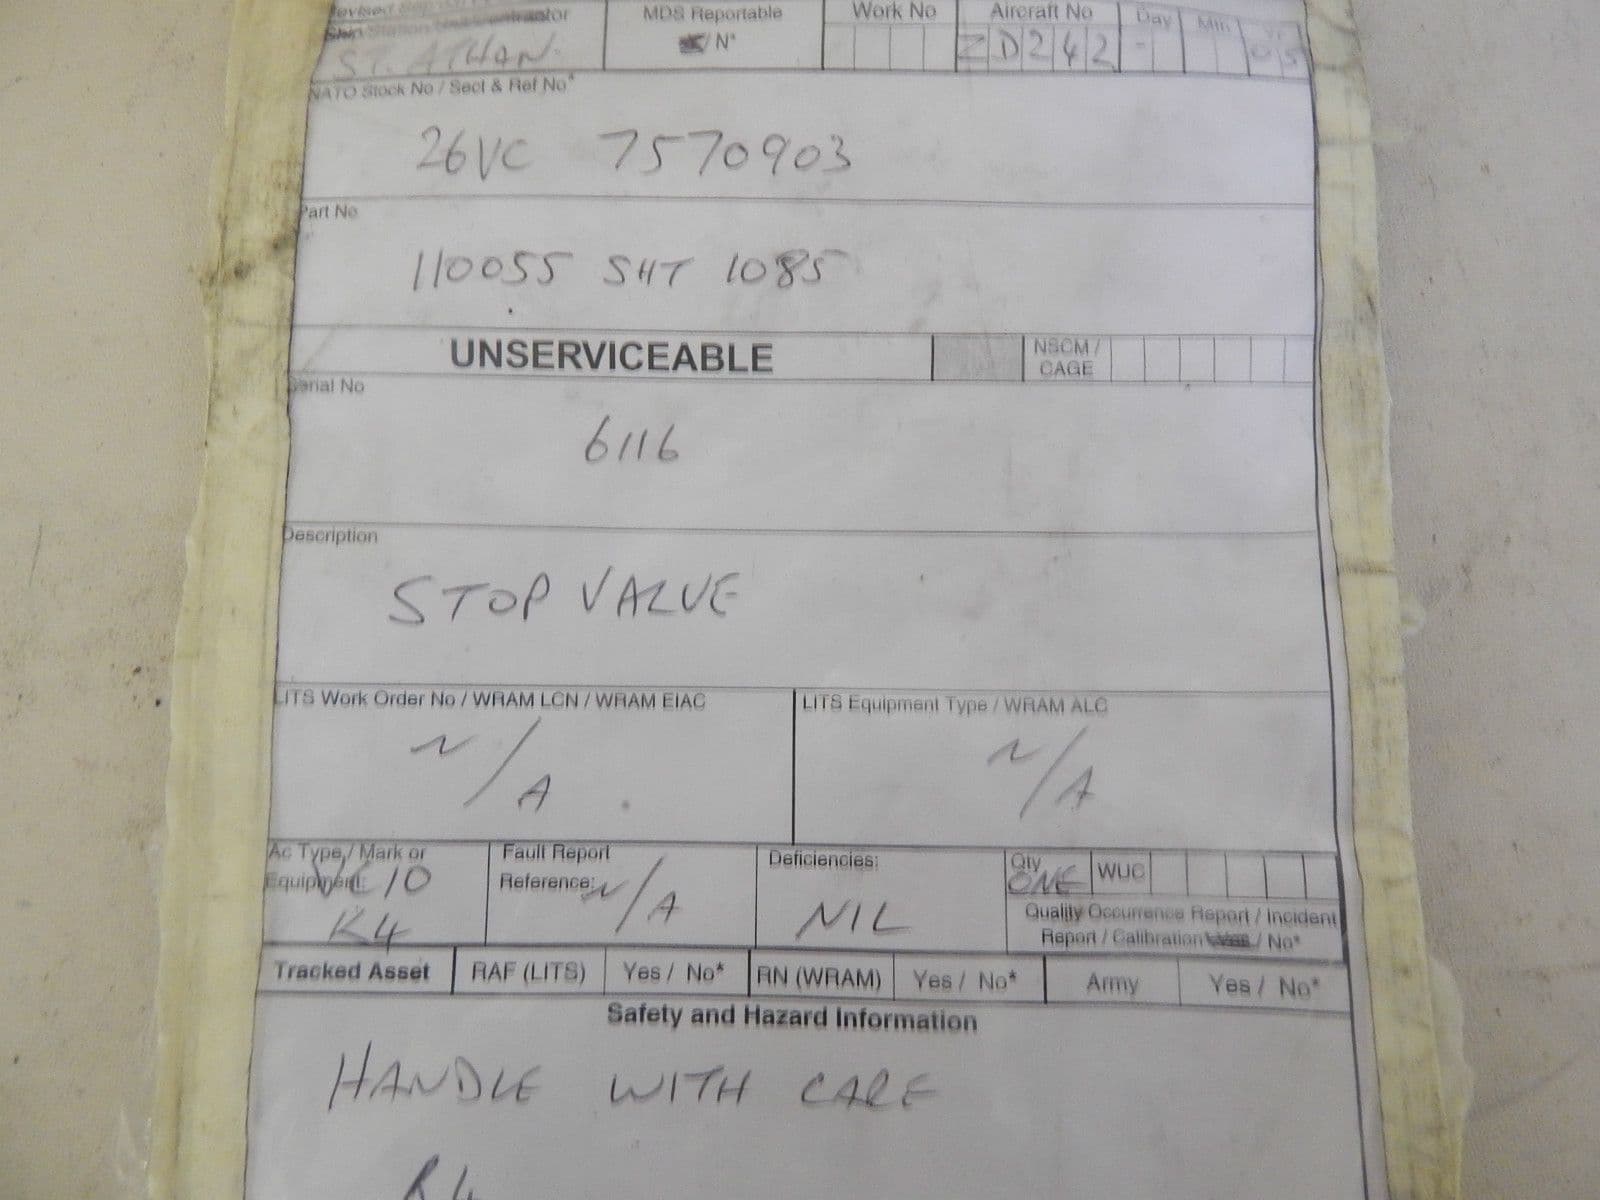 Revised Sep
Ship Station Unit Contractor
ST. ATHAN
MDS Reportable
/ N*
Work No
Aircraft No
ZD242
Day Mth Yr
- 05
NATO Stock No / Sect & Ref No*
26VC 7570903
Part No
110055 SHT 1085
UNSERVICEABLE
NSCM /
CAGE
Serial No
6116
Description
STOP VALVE
LITS Work Order No / WRAM LCN / WRAM EIAC
N/A
LITS Equipment Type / WRAM ALC
N/A
Ac Type / Mark or
Equipment:
VC10
K4
Fault Report
Reference:
N/A
Deficiencies:
NIL
Qty
ONE
WUC
Quality Occurrence Report / Incident
Report / Calibration Yes / No*
Tracked Asset RAF (LITS) Yes / No* RN (WRAM) Yes / No* Army Yes / No*
Safety and Hazard Information
HANDLE WITH CARE